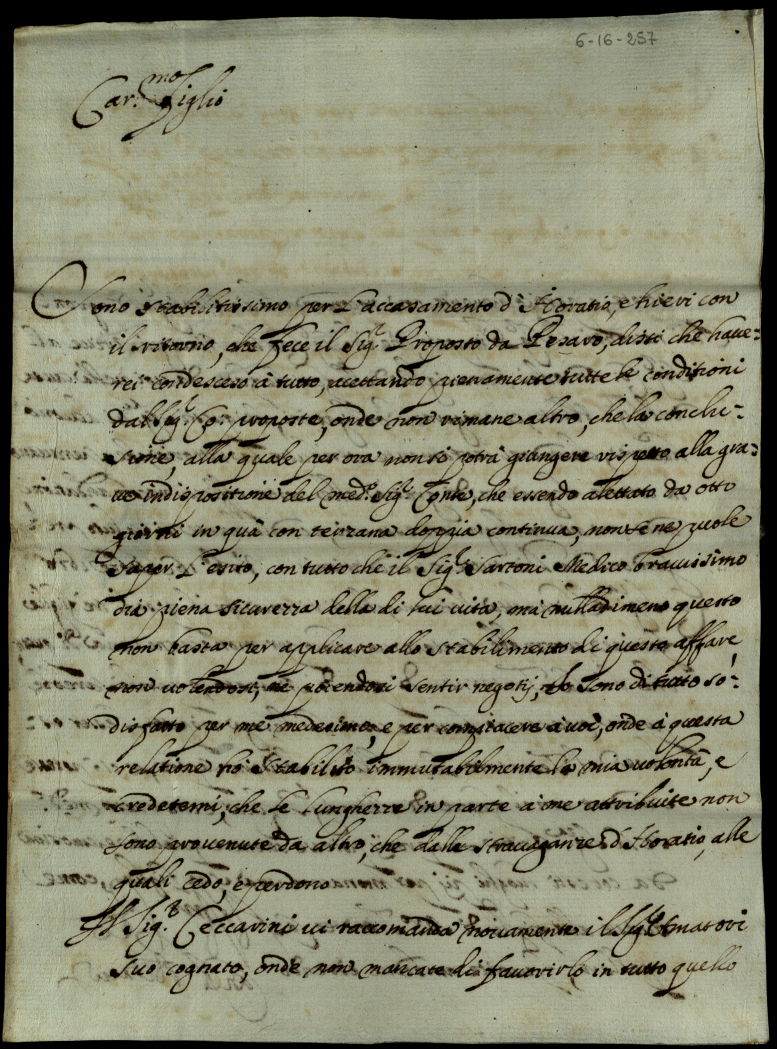 6-16-257
Car.mo figlio
Sono stabilitissimo per l'accasamento d'Horatio, e hievi con
il ritorno, che fece il Sig.r Proposto da Pesaro, dissi che have=
rei condesceso à tutto, accettando pienamente tutte le conditioni
dal Sig.r Co: proposte, onde non rimane altro, che la conclu=
sione, alla quale per ora non si potrà giungere rispetto alla gra=
ve indispositione del med.o Sig.r Conte, che essendo alettato da otto
giorni in quà con terzana doppia continua, non se ne puole
saper l'esito, con tutto che il Sig.r Sartoni Medico bravissimo
dia piena sicurezza della di lui vita, mà nulladimeno questo
non basta per applicare allo stabilimento di questo affare,
non volendosi, ne potendosi sentir negotij, Io sono di tutto so=
disfatto per me medesimo, e per compiacere à voi, onde à questa
relatione hò stabilito immutabilmente la mia volontà, e
credetemi, che le lungherre in parte à me attribuite non
sono provenute da altro, che dalle stravaganze d'Horatio, alle
quali cedo, e perdono
Il Sig.r Ceccarini vi raccomanda novamente il Sig.r Amatori
suo cognato, onde non mancate di favorirlo in tutto quello